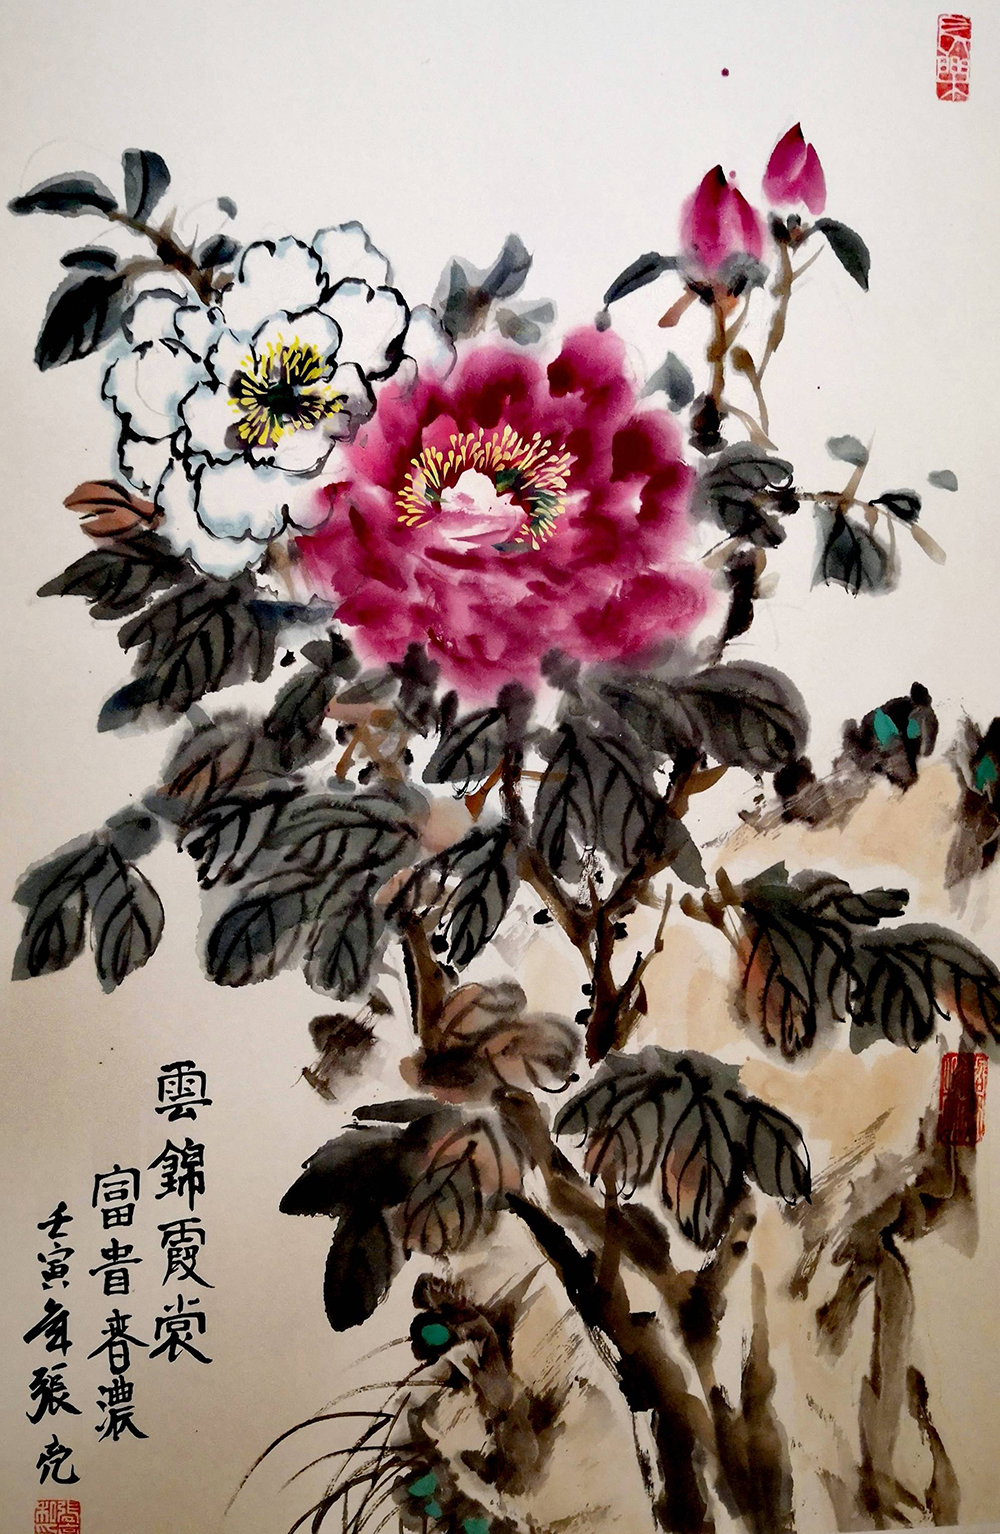 雲錦霞裳
富貴春濃
壬寅年張亮